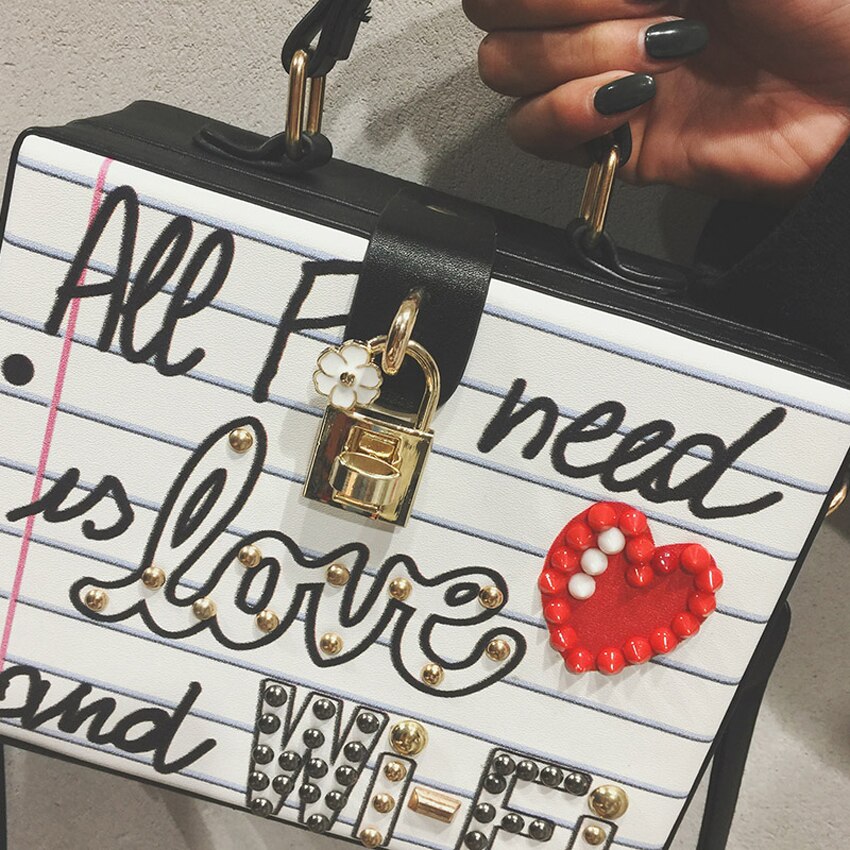 All F need
is love
and Wi-Fi